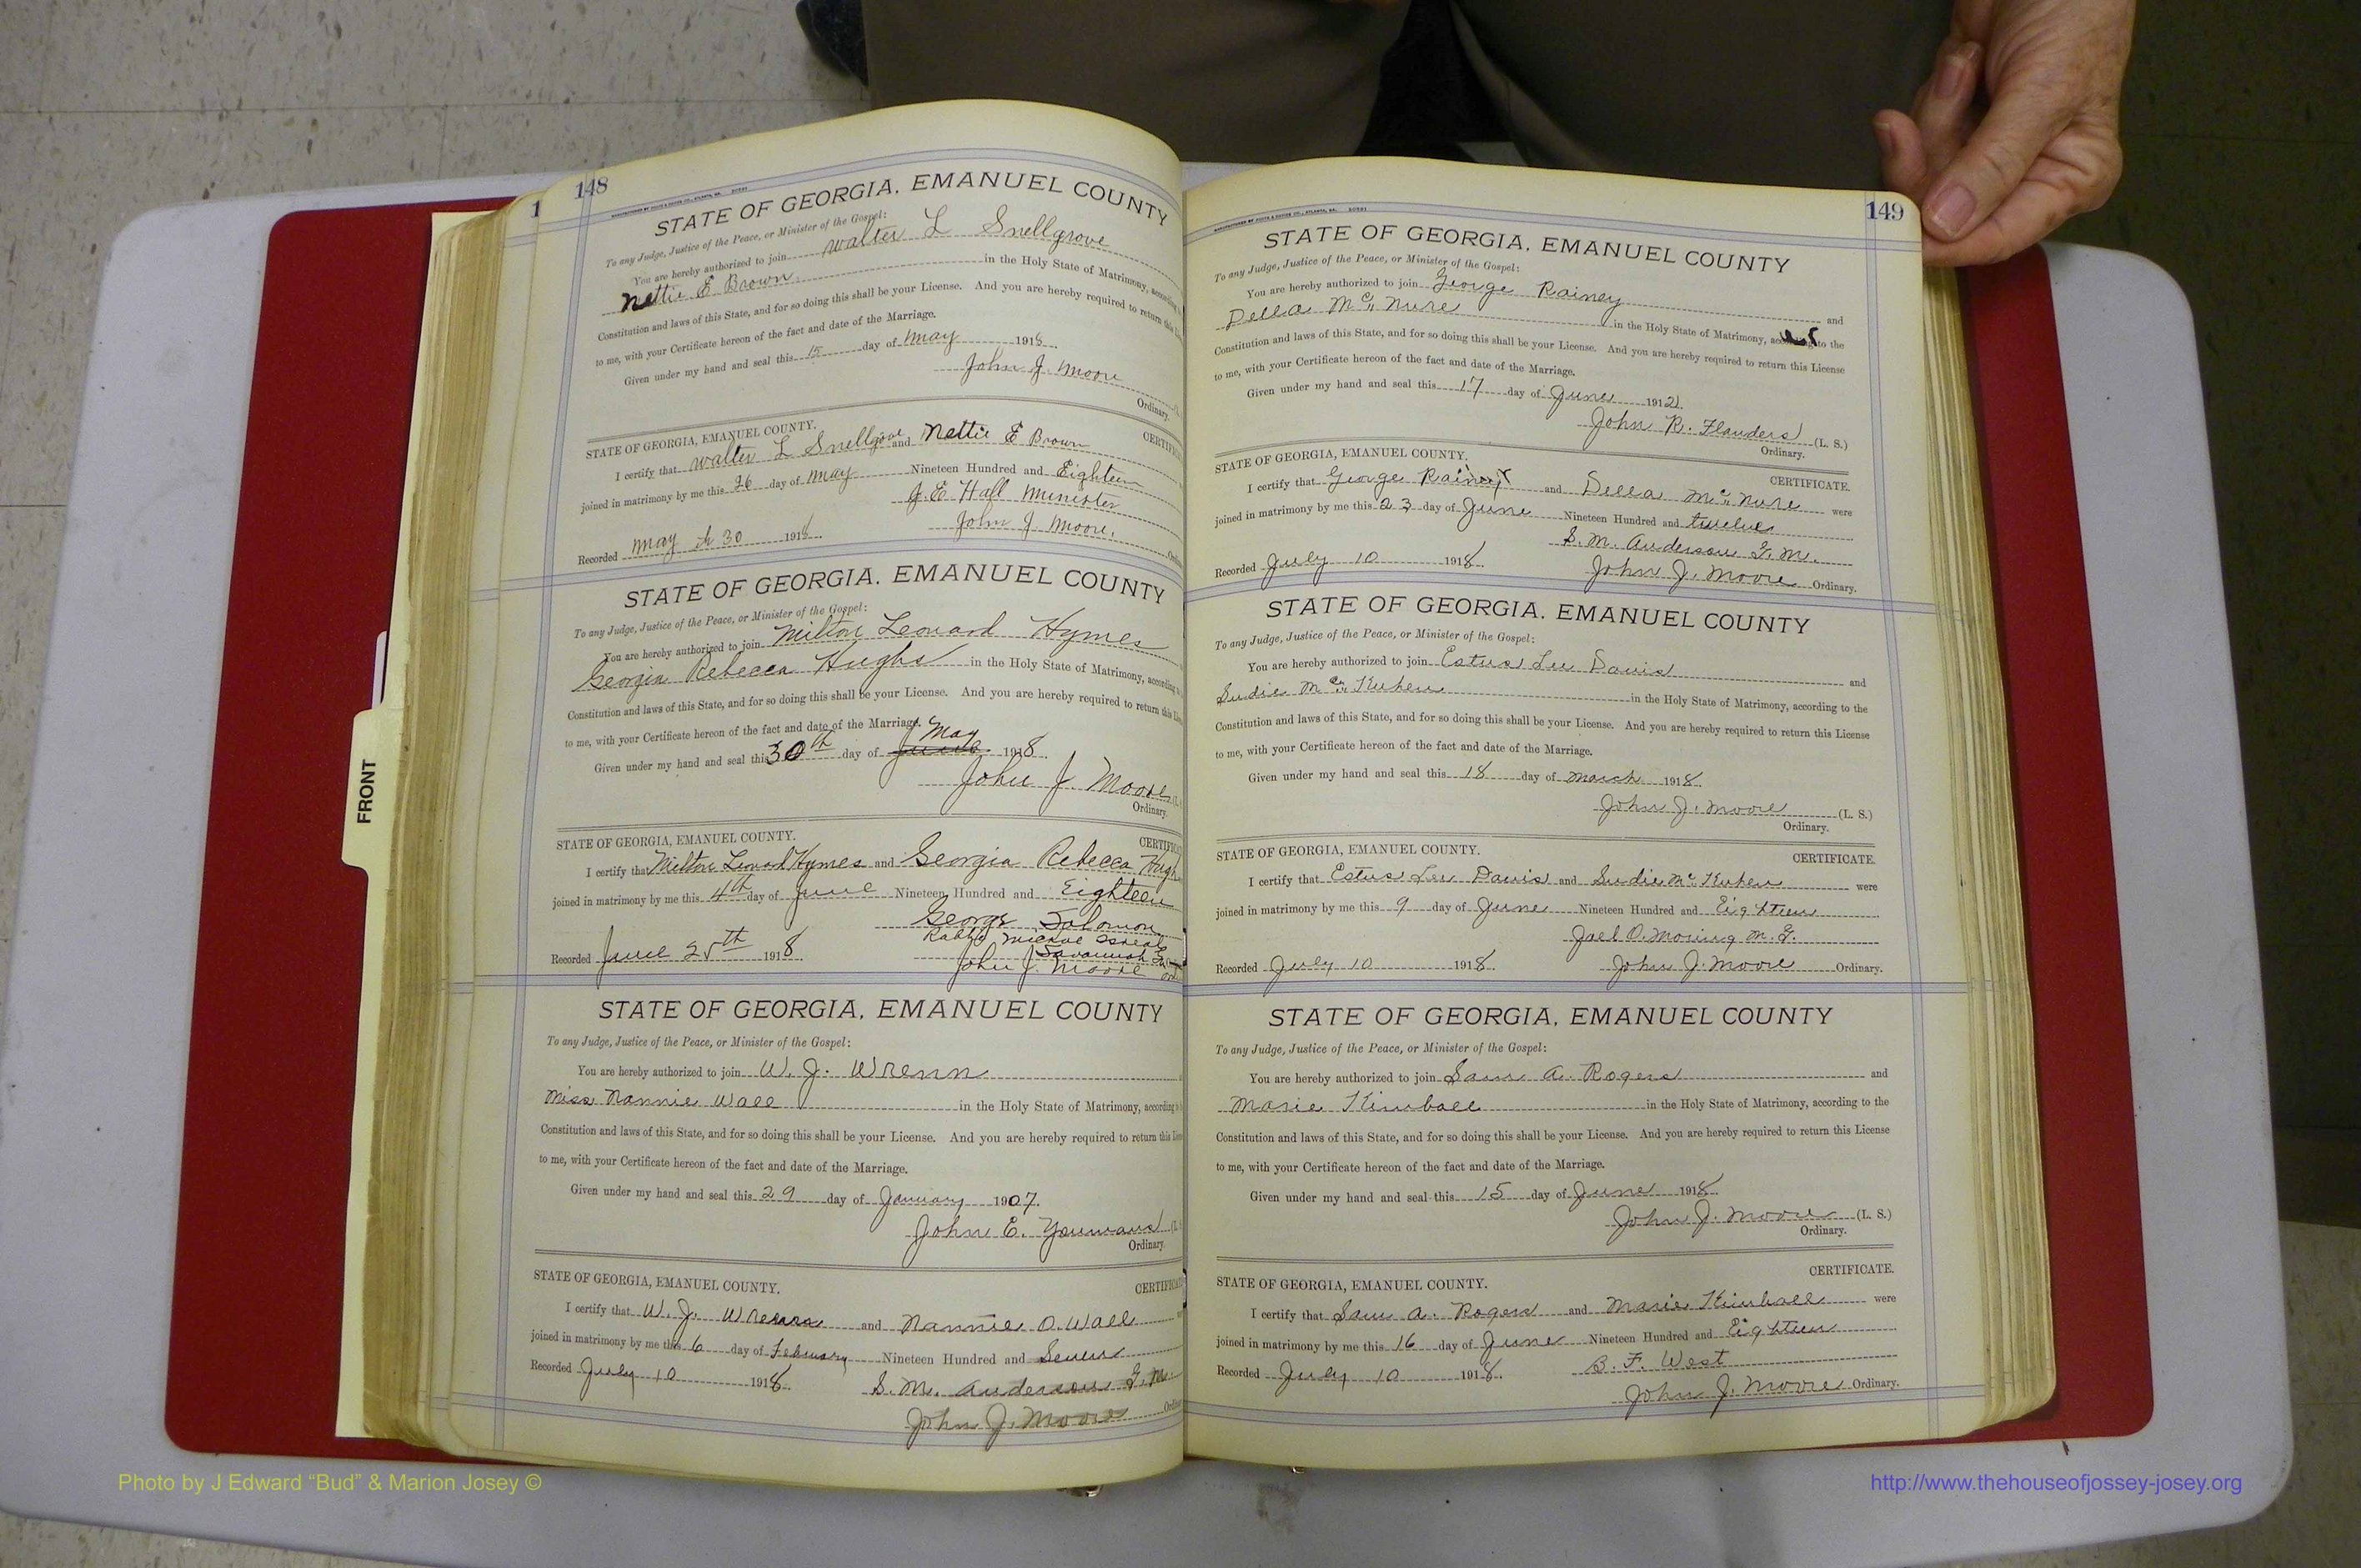 148
STATE OF GEORGIA, EMANUEL COUNTY
To any Judge, Justice of the Peace, or Minister of the Gospel:
You are hereby authorized to join Walter L Snellgrove
Nettie E Brown in the Holy State of Matrimony,
Constitution and laws of this State, and for so doing this shall be your License. And you are hereby required to return this
to me, with your Certificate hereon of the fact and date of the Marriage.
Given under my hand and seal this 15 day of May 1918.
John J. Moore
Ordinary.
STATE OF GEORGIA, EMANUEL COUNTY.
I certify that Walter L Snellgrove and Nettie E Brown
joined in matrimony by me this 26 day of May Nineteen Hundred and Eighteen
J. E Hall Minister
Recorded May 30 1918.
John J. Moore.
STATE OF GEORGIA, EMANUEL COUNTY
To any Judge, Justice of the Peace, or Minister of the Gospel:
You are hereby authorized to join Milton Leonard Hymes
Georgia Rebecca Hughs in the Holy State of Matrimony,
Constitution and laws of this State, and for so doing this shall be your License. And you are hereby required to return this
to me, with your Certificate hereon of the fact and date of the Marriage.
May
Given under my hand and seal this 30th day of 1918.
John J. Moore
Ordinary.
STATE OF GEORGIA, EMANUEL COUNTY.
I certify that Milton Leonard Hymes and Georgia Rebecca Hugh
joined in matrimony by me this 4th day of June Nineteen Hundred and Eighteen
George Solomon
Rabbi Mickve Israel
Savannah
Recorded June 25th 1918.
John J. Moore
STATE OF GEORGIA, EMANUEL COUNTY
To any Judge, Justice of the Peace, or Minister of the Gospel:
You are hereby authorized to join W. J. Wrenn
Miss Nannie Wall in the Holy State of Matrimony, according
Constitution and laws of this State, and for so doing this shall be your License. And you are hereby required to return this
to me, with your Certificate hereon of the fact and date of the Marriage.
Given under my hand and seal this 29 day of January 1907.
John E. Youmans
Ordinary.
STATE OF GEORGIA, EMANUEL COUNTY.
I certify that W. J. Wrenn and Nannie O. Wall
joined in matrimony by me this 6 day of February Nineteen Hundred and Seven
Recorded July 10 1918.
S. M. Anderson J. M.
John J. Moore
149
STATE OF GEORGIA, EMANUEL COUNTY
To any Judge, Justice of the Peace, or Minister of the Gospel:
You are hereby authorized to join George Rainey and
Della McNure in the Holy State of Matrimony, according to the
Constitution and laws of this State, and for so doing this shall be your License. And you are hereby required to return this License
to me, with your Certificate hereon of the fact and date of the Marriage.
Given under my hand and seal this 17 day of June 1912.
John R. Flanders (L. S.)
Ordinary.
STATE OF GEORGIA, EMANUEL COUNTY.
CERTIFICATE.
I certify that George Rainey and Della McNure were
joined in matrimony by me this 23 day of June Nineteen Hundred and twelve
S. M. Anderson J. M.
Recorded July 10 1918.
John J. Moore Ordinary.
STATE OF GEORGIA, EMANUEL COUNTY
To any Judge, Justice of the Peace, or Minister of the Gospel:
You are hereby authorized to join Estus Lee Davis and
Sudie in the Holy State of Matrimony, according to the
Constitution and laws of this State, and for so doing this shall be your License. And you are hereby required to return this License
to me, with your Certificate hereon of the fact and date of the Marriage.
Given under my hand and seal this 18 day of March 1918.
John J. Moore (L. S.)
Ordinary.
STATE OF GEORGIA, EMANUEL COUNTY.
CERTIFICATE.
I certify that Estus Lee Davis and Sudie were
joined in matrimony by me this 9 day of June Nineteen Hundred and Eighteen
Joel O. Moring M. G.
Recorded July 10 1918.
John J. Moore Ordinary.
STATE OF GEORGIA, EMANUEL COUNTY
To any Judge, Justice of the Peace, or Minister of the Gospel:
You are hereby authorized to join Sam A. Rogers and
Marie Kimball in the Holy State of Matrimony, according to the
Constitution and laws of this State, and for so doing this shall be your License. And you are hereby required to return this License
to me, with your Certificate hereon of the fact and date of the Marriage.
Given under my hand and seal this 15 day of June 1918.
John J. Moore (L. S.)
Ordinary.
CERTIFICATE.
STATE OF GEORGIA, EMANUEL COUNTY.
I certify that Sam A. Rogers and Marie Kimball were
joined in matrimony by me this 16 day of June Nineteen Hundred and Eighteen
B. F. West
Recorded July 10 1918.
John J. Moore Ordinary.
FRONT
Photo by J Edward “Bud” & Marion Josey ©
http://www.thehouseofjossey-josey.org